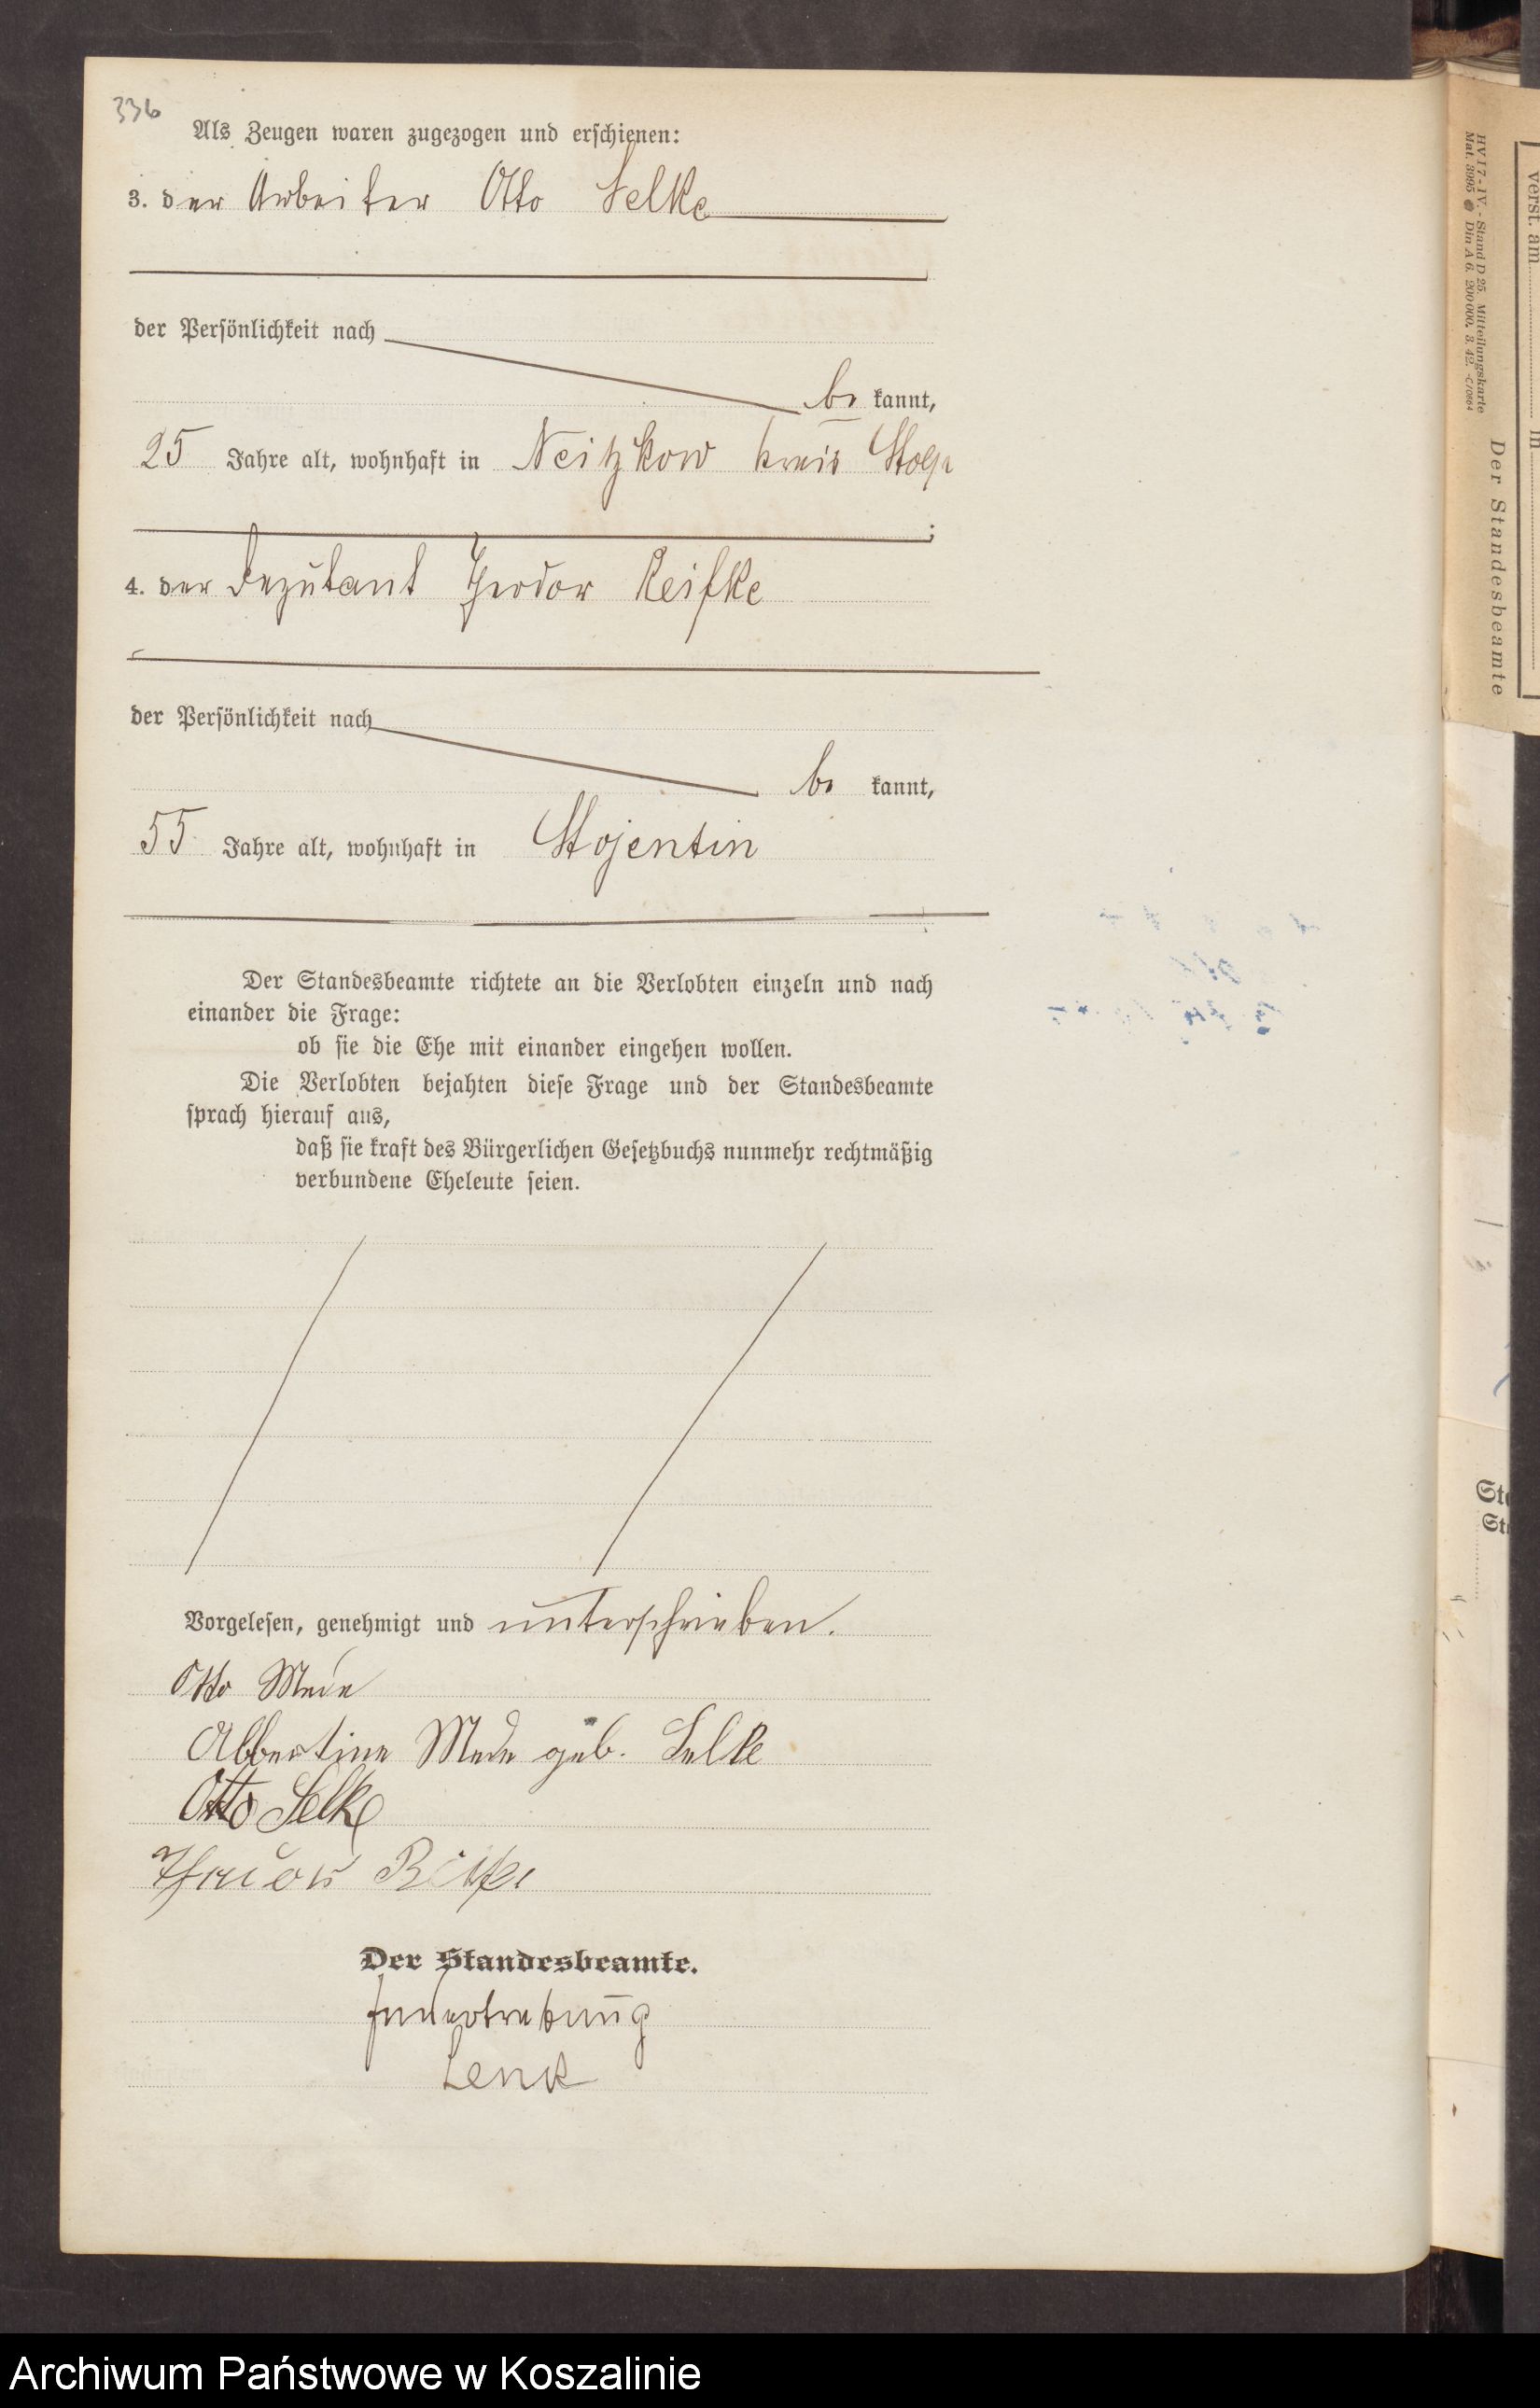 336
Als Zeugen waren zugezogen und erschienen:
3. der Arbeiter Otto Selke
der Persönlichkeit nach
be kannt,
25 Jahre alt, wohnhaft in Neitzkow Kreis Stolp
;
4. der Deputant Theodor Reifke
der Persönlichkeit nach
be kannt,
55 Jahre alt, wohnhaft in Stojentin
Der Standesbeamte richtete an die Verlobten einzeln und nach
einander die Frage:
ob sie die Ehe mit einander eingehen wollen.
Die Verlobten bejahten diese Frage und der Standesbeamte
sprach hierauf aus,
daß sie kraft des Bürgerlichen Gesetzbuchs nunmehr rechtmäßig
verbundene Eheleute seien.
Vorgelesen, genehmigt und unterschrieben.
Otto
Albertine geb. Selke
Otto Selke
Der Standesbeamte.
In Vertretung
Lenk
HV I 7 - IV. - Stand D 25. Mitteilungskarte
Mat. 3995 Din A 6. 200000. 3. 42.
Der Standesbeamte
verst. am
in
Archiwum Państwowe w Koszalinie